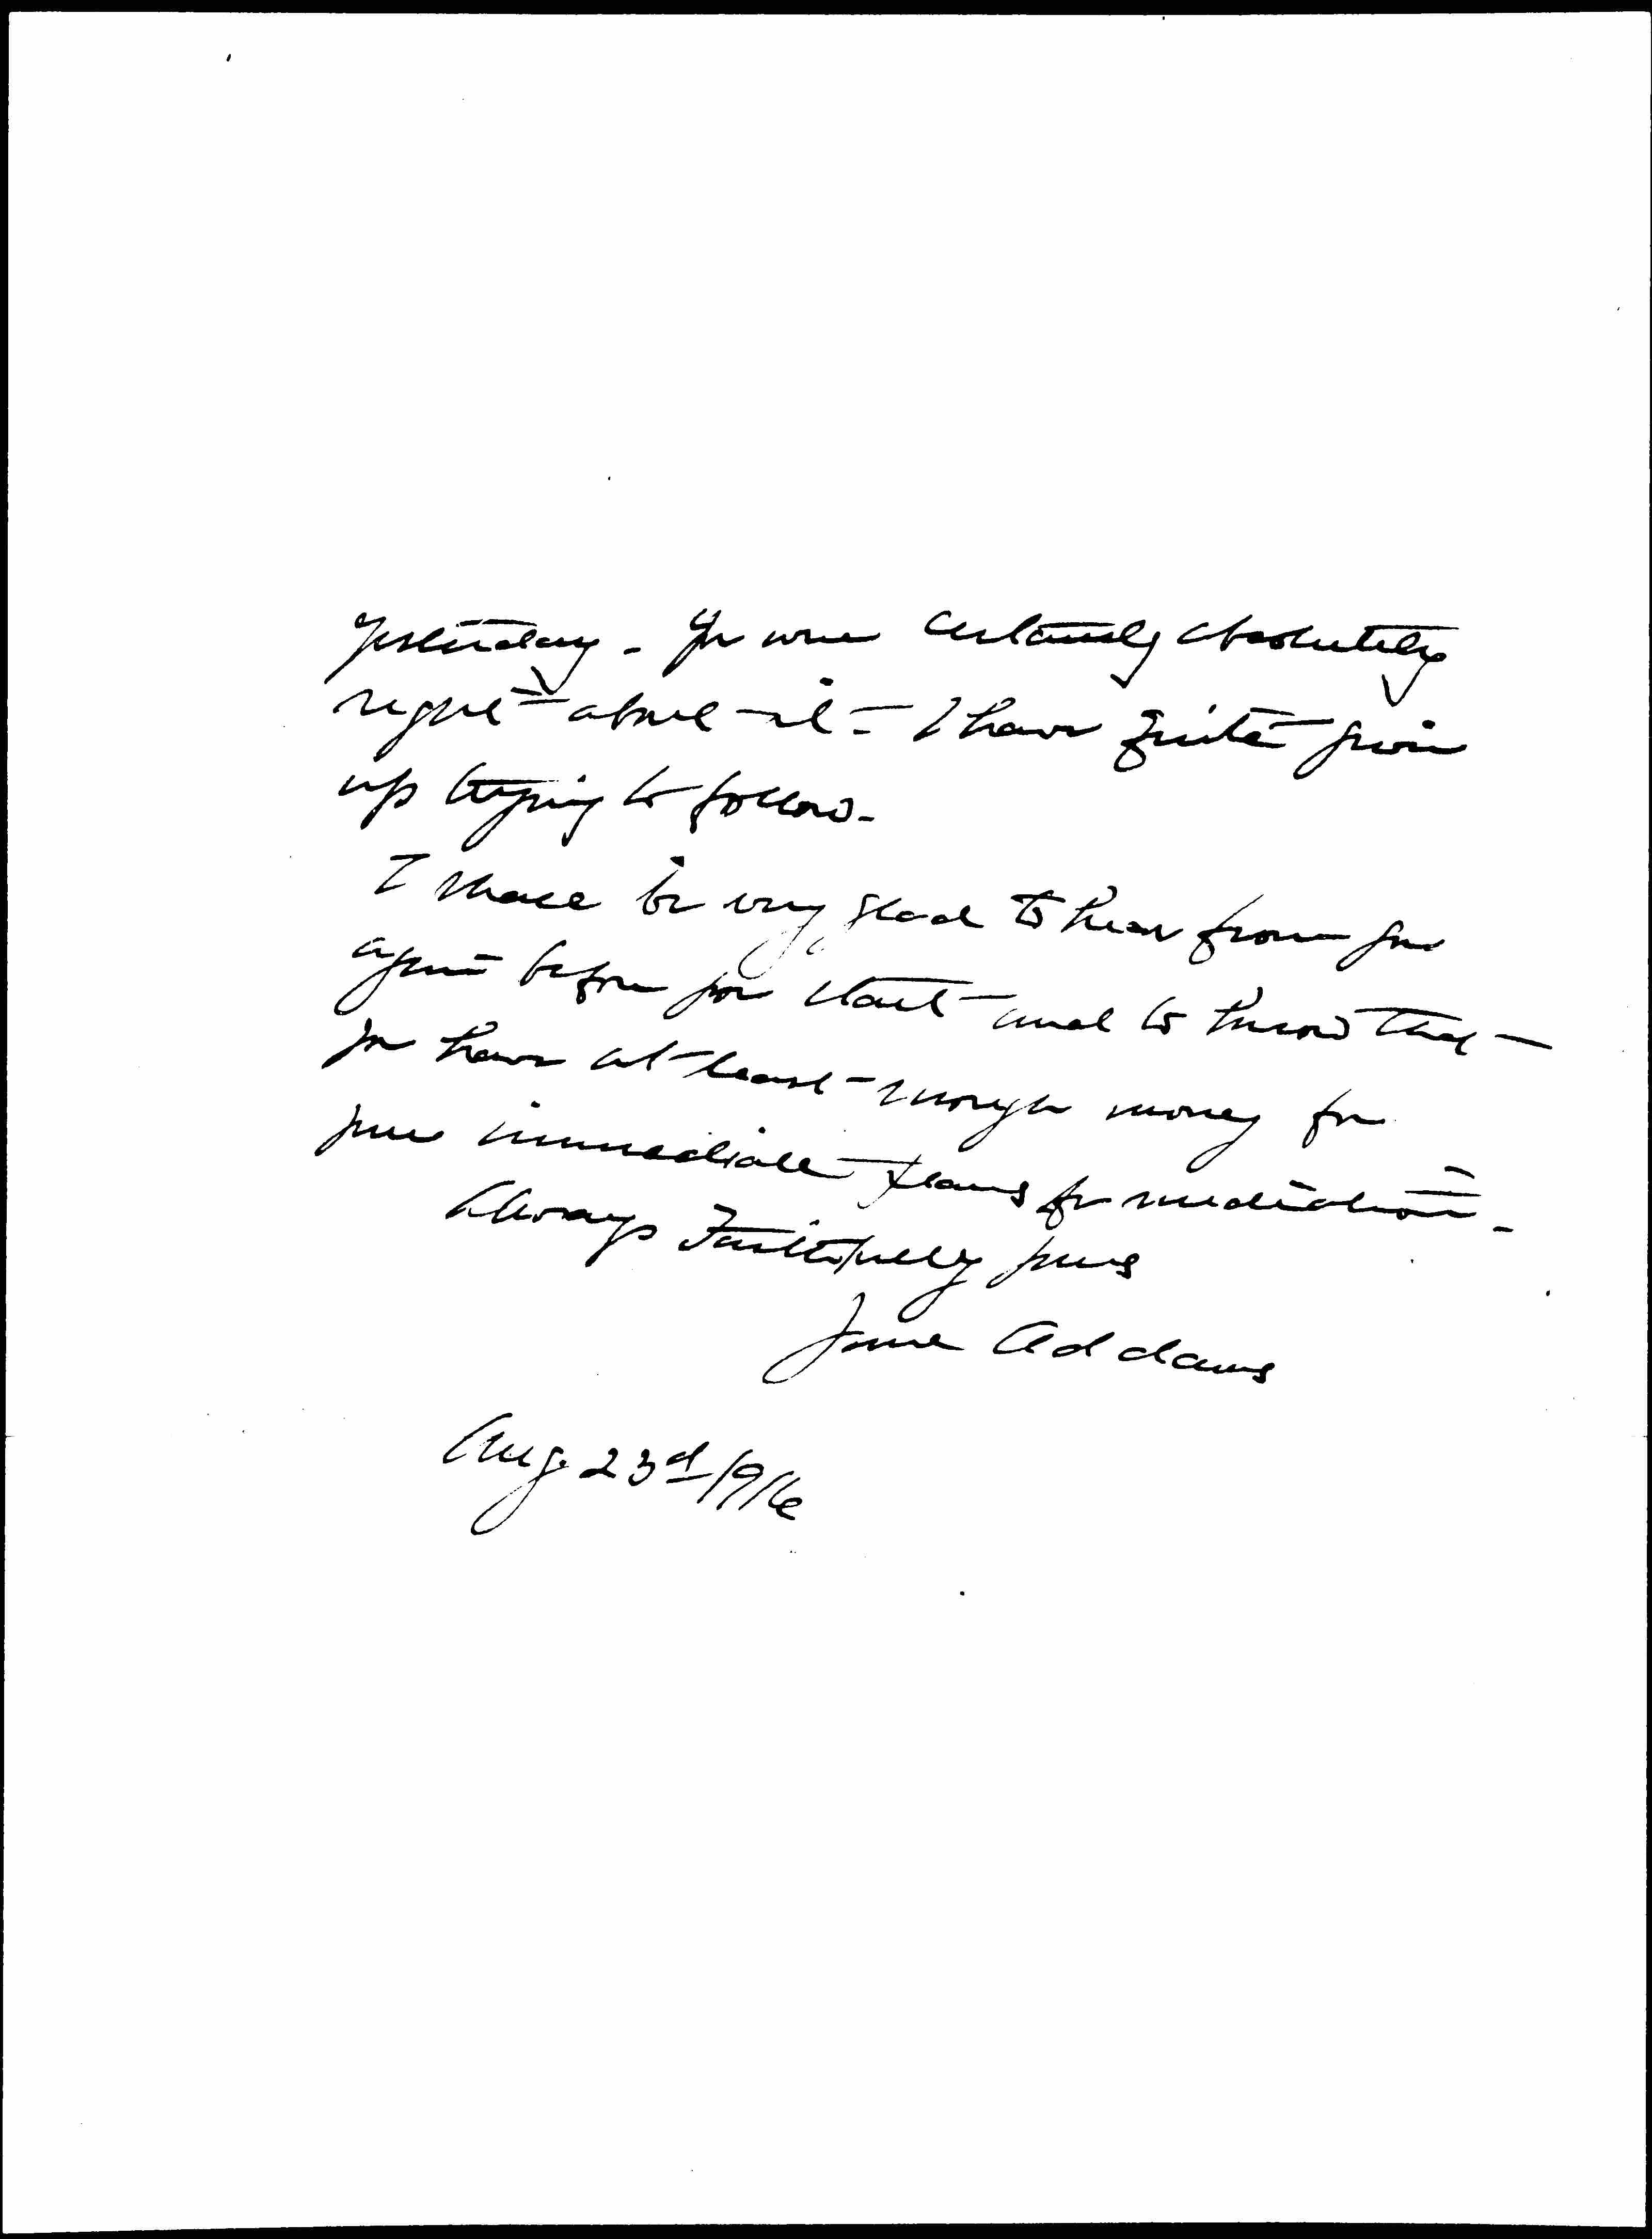 yesterday - You were certainly absolutely
right about it - I have quite given
up trying to follow -
I shall be very glad to hear from you
again before you start and to know that
you have at least enough money for
your immediate plans for mediation -
Always Faithfully yours
Jane Addams
Aug. 23d 1916